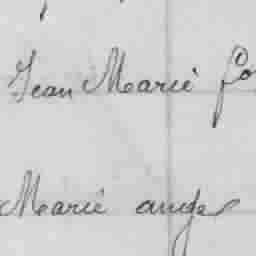 Jean Marié
Marié ange